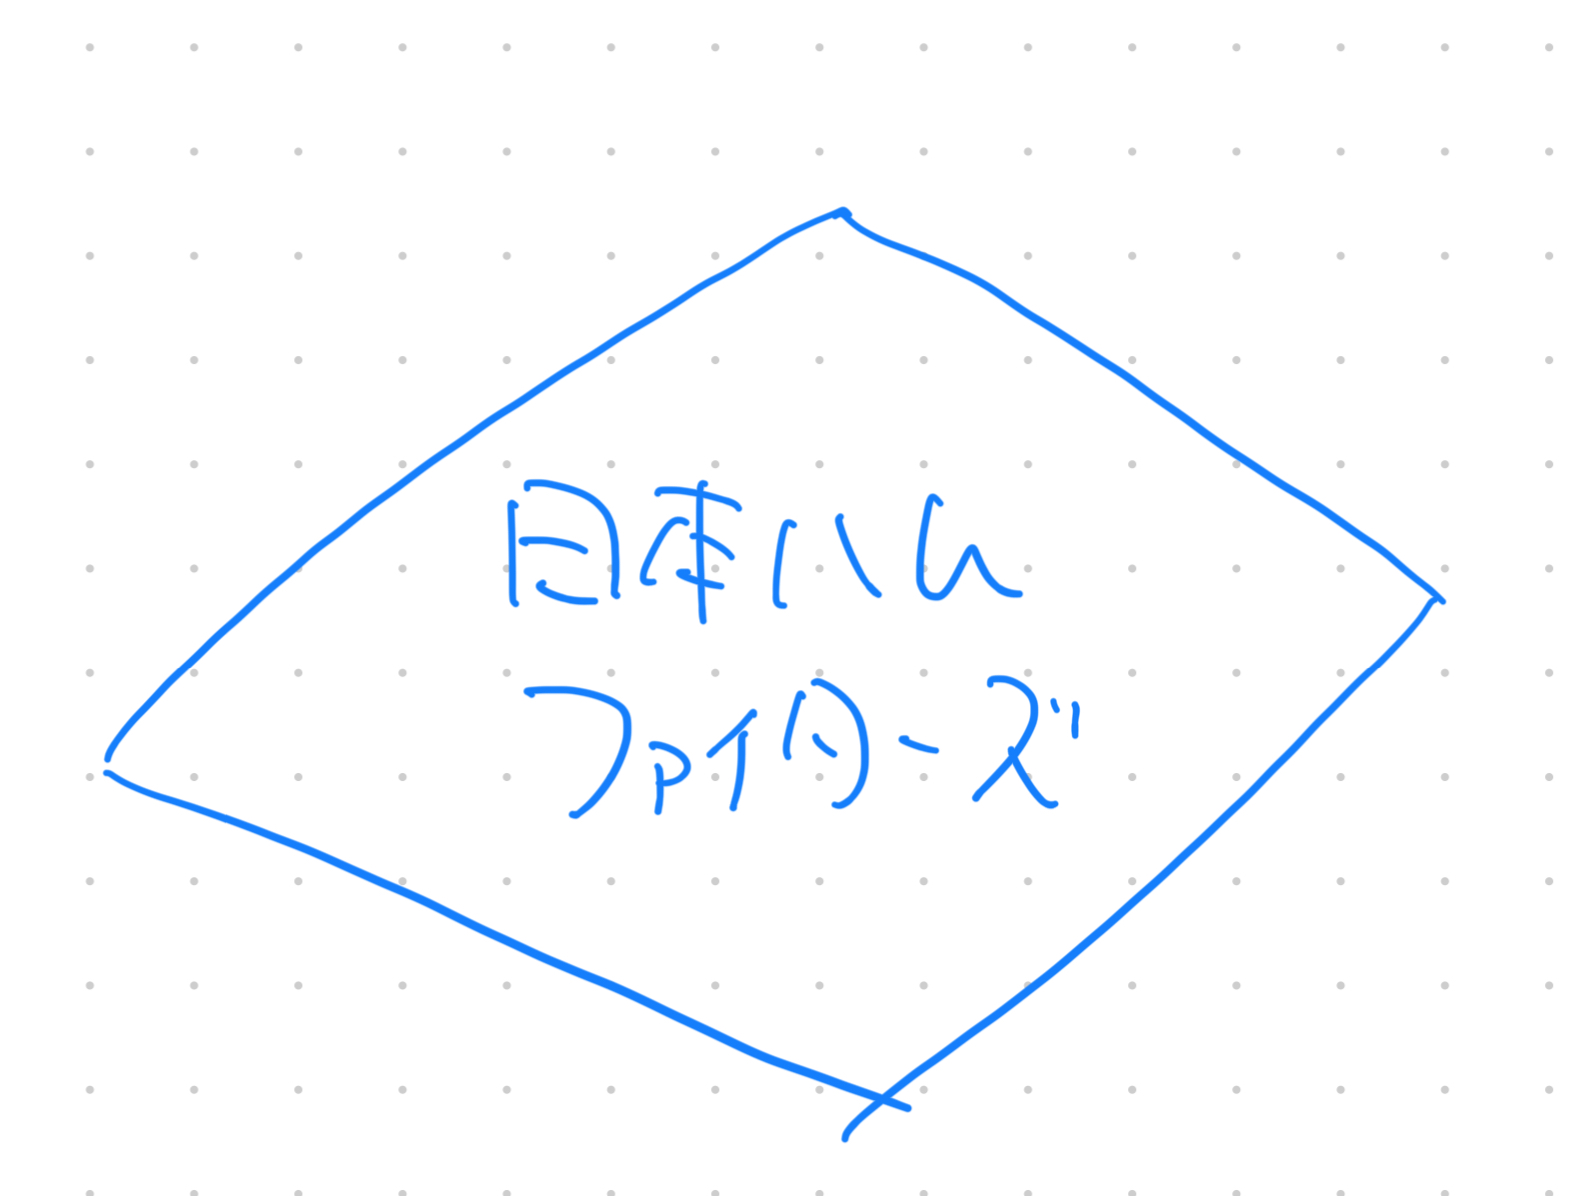 日本ハム
ファイターズ